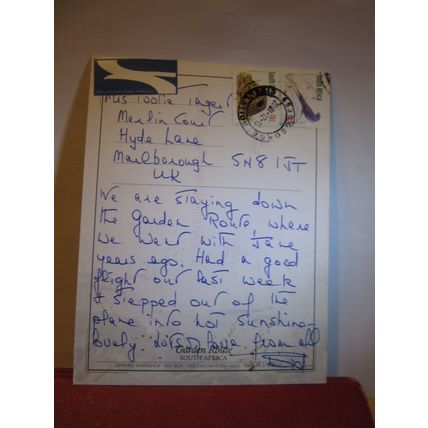 Mrs Tootie Target
Merlin Court
Hyde Lane
Marlborough SN8 1JT
UK
We are staying down
the Garden Route, where
we went with Jane
years ago. Had a good
flight out last week
& stepped out of the
plane into hot sunshine –
lovely. Lots of love from all
Garden Route
SOUTH AFRICA
South Africa
GEORGE